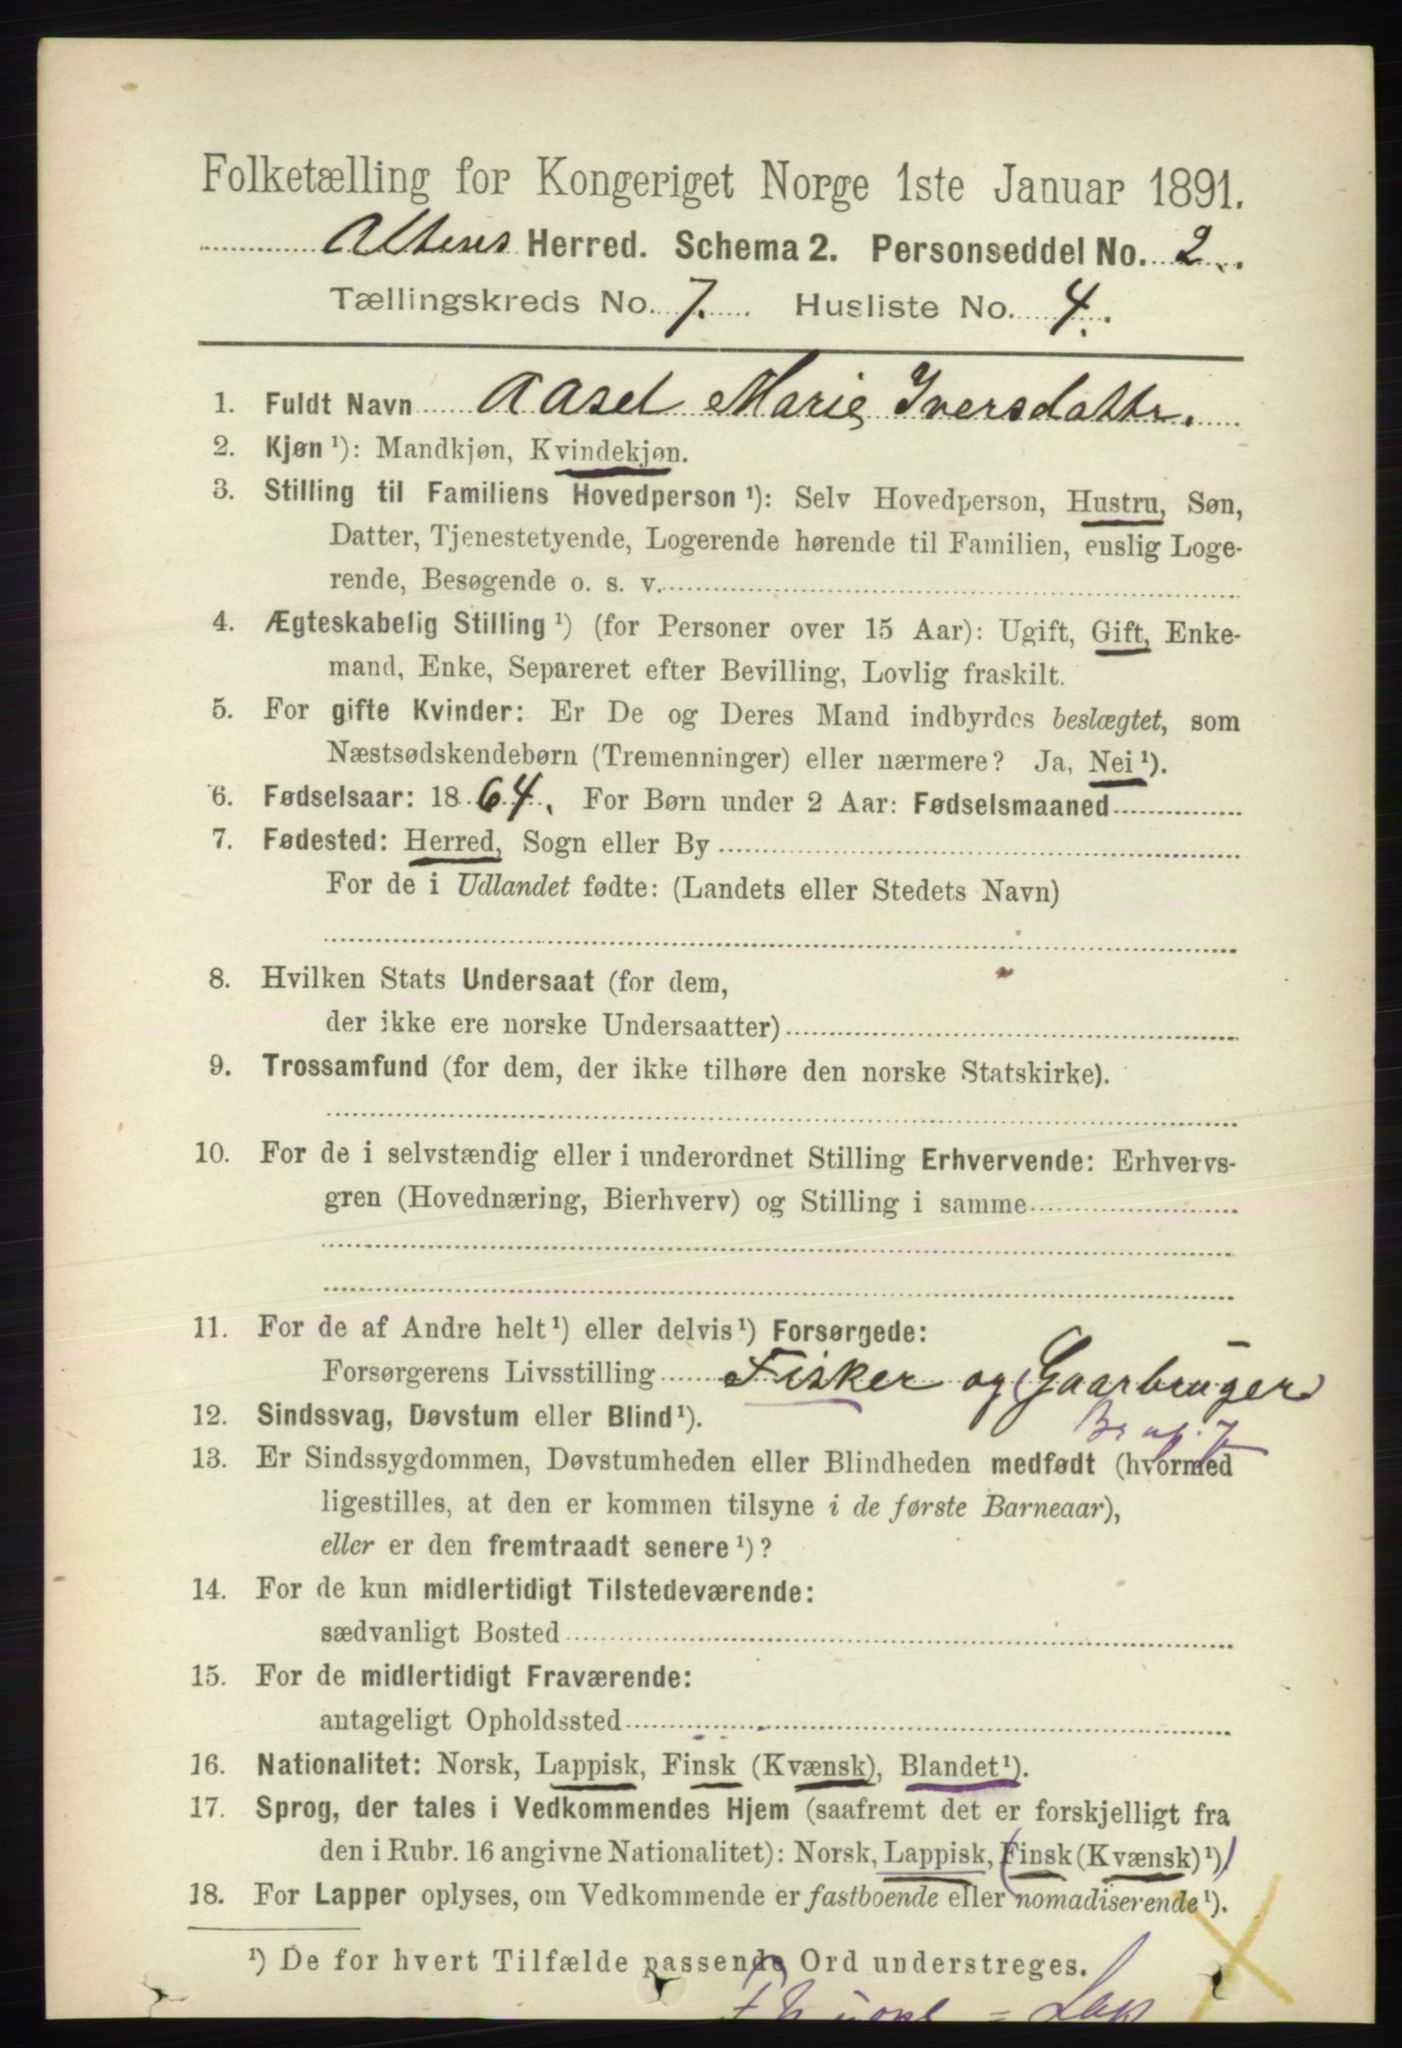 Folketælling for Kongeriget Norge 1ste Januar 1891.
Altens Herred. Schema 2. Personseddel No. 2.
Tællingskreds No. 7. Husliste No. 4.
1. Fuldt Navn Aasel Marie Iversdattr.
2. Kjøn ¹): Mandkjøn, Kvindekjøn.
3. Stilling til Familiens Hovedperson ¹): Selv Hovedperson, Hustru, Søn,
Datter, Tjenestetyende, Logerende hørende til Familien, enslig Loge-
rende, Besøgende o. s. v.
4. Ægteskabelig Stilling ¹) (for Personer over 15 Aar): Ugift, Gift, Enke-
mand, Enke, Separeret efter Bevilling, Lovlig fraskilt.
5. For gifte Kvinder: Er De og Deres Mand indbyrdes beslægtet, som
Næstsødskendebørn (Tremenninger) eller nærmere? Ja, Nei ¹).
6. Fødselsaar: 1864. For Børn under 2 Aar: Fødselsmaaned
7. Fødested: Herred, Sogn eller By
For de i Udlandet fødte: (Landets eller Stedets Navn)
8. Hvilken Stats Undersaat (for dem,
der ikke ere norske Undersaatter)
9. Trossamfund (for dem, der ikke tilhøre den norske Statskirke).
10. For de i selvstændig eller i underordnet Stilling Erhvervende: Erhvervs-
gren (Hovednæring, Bierhverv) og Stilling i samme
11. For de af Andre helt ¹) eller delvis ¹) Forsørgede:
Forsørgerens Livsstilling Fisker og Gaarbruger
12. Sindssvag, Døvstum eller Blind ¹).
13. Er Sindssygdommen, Døvstumheden eller Blindheden medfødt (hvormed
ligestilles, at den er kommen tilsyne i de første Barneaar),
eller er den fremtraadt senere ¹)?
14. For de kun midlertidigt Tilstedeværende:
sædvanligt Bosted
15. For de midlertidigt Fraværende:
antageligt Opholdssted
16. Nationalitet: Norsk, Lappisk, Finsk (Kvænsk), Blandet ¹).
17. Sprog, der tales i Vedkommendes Hjem (saafremt det er forskjelligt fra
den i Rubr. 16 angivne Nationalitet): Norsk, Lappisk, (Finsk (Kvænsk) ¹))
18. For Lapper oplyses, om Vedkommende er fastboende eller nomadiserende ¹).
¹) De for hvert Tilfælde passende Ord understreges.
= Lap